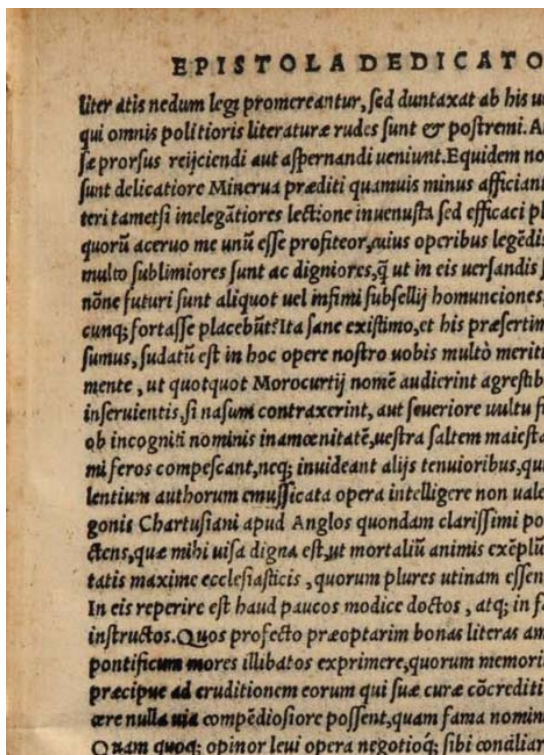 EPISTOLA DEDICATO
liter atis nedum legi promereantur, sed duntaxat ab his u
qui omnis politioris literaturæ rudes sunt & postremi. A
sæ prorsus reijciendi aut aspernandi ueniunt. Equidem no
sunt delicatiore Minerua præditi quamuis minus afficiant
teri tametsi inelegãtiores lectione inuenusta sed efficaci pl
quorũ aceruo me unũ esse profiteor, cuius operibus legẽdis
multo sublimiores sunt ac digniores, q̃ ut in eis uersandis
nõne futuri sunt aliquot uel infimi subsellij homunciones,
cunq; fortasse placebũt? Ita sane existimo, et his præsertim
sumus, sudatũ est in hoc opere nostro uobis multò merit
mente, ut quotquot Morocurtij nomẽ audierint agrestib
inseruientis, si nasum contraxerint, aut seueriore uultu f
ob incogniti nominis inamœnitatẽ, uestra saltem maiesta
mi feros compescant, neq; inuideant alijs tenuioribus, qu
lentium authorum emussicata opera intelligere non uale
gonis Chartusiani apud Anglos quondam clarissimi po
ctens, quæ mihi uisa digna est, ut mortaliũ animis exẽplu
tatis maxime ecclesiasticis, quorum plures utinam essen
In eis reperire est haud paucos modice doctos, atq; in f
instructos. Quos profecto præoptarim bonas literas am
pontificum mores illibatos exprimere, quorum memori
præcipue ad eruditionem eorum qui suæ curæ cõcrediti
cere nulla uia compẽdiosiore possent, quam fama nomin
Quam quoq; opinor leui opera negotioq; sibi conciliar